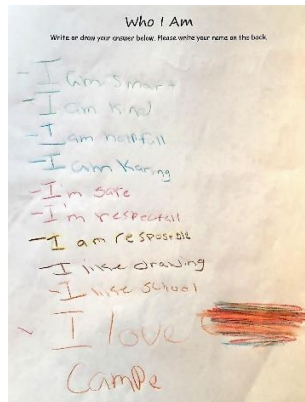 Who I Am
Write or draw your answer below. Please write your name on the back.
- I am Smart
- I am Kind
- I am helpfull
- I am Karing
- I'm Safe
- I'm respectall
- I am resposeble
- I like drawing
- I like School
- I love
Campe